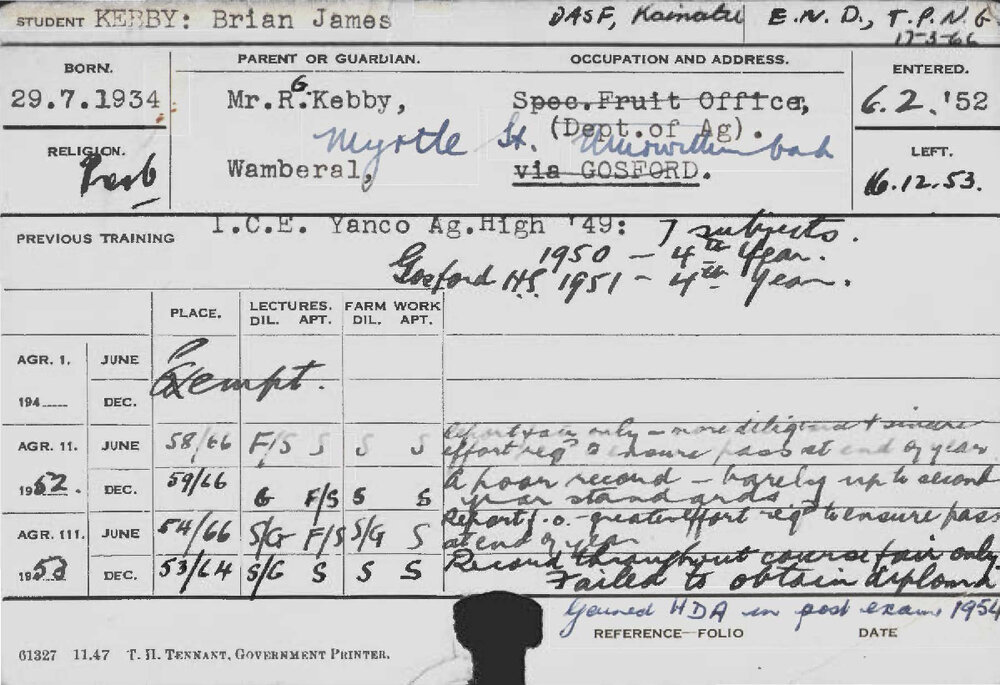 STUDENT KEBBY: Brian James DASF, Kainatu E.N.D., T.P.N.G.
17-3-66
BORN. PARENT OR GUARDIAN. OCCUPATION AND ADDRESS. ENTERED.
29.7.1934 Mr.R.G.Kebby, Spec.Fruit Officer, 6.2.'52
(Dept.of Ag).
Myrtle St.
RELIGION. LEFT.
Presb Wamberal, via GOSFORD. 16.12.53.
PREVIOUS TRAINING I.C.E. Yanco Ag.High '49: 7 subjects.
1950 - 4th Year.
Gosford H.S. 1951 - 4th Year.
PLACE. LECTURES. FARM WORK
DIL. APT. DIL. APT.
AGR. 1. JUNE
Exempt.
194 DEC.
AGR. 11. JUNE 58/66 F/S S S S Report fair only - more diligence & sincere
effort req'd to ensure pass at end of year
1952. DEC. 59/66 G F/S S S A poor record - barely up to second
year standards
AGR. 111. JUNE 54/66 S/G F/S S/G S Report f.o. - greater effort req'd to ensure pass
at end of year
1953 DEC. 53/64 S/G S S S Record throughout course fair only.
Failed to obtain diploma
Gained HDA in post exams 1954
REFERENCE—FOLIO DATE
61327 11.47 T. H. TENNANT, GOVERNMENT PRINTER.